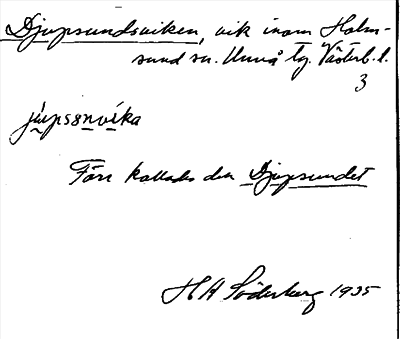 Djupsundsviken, vik inom Holm-
sund sn. Umeå tg. Västerb. l.
3
júpssnvíka
Förr kallades den Djupsundet
H A Söderberg 1935